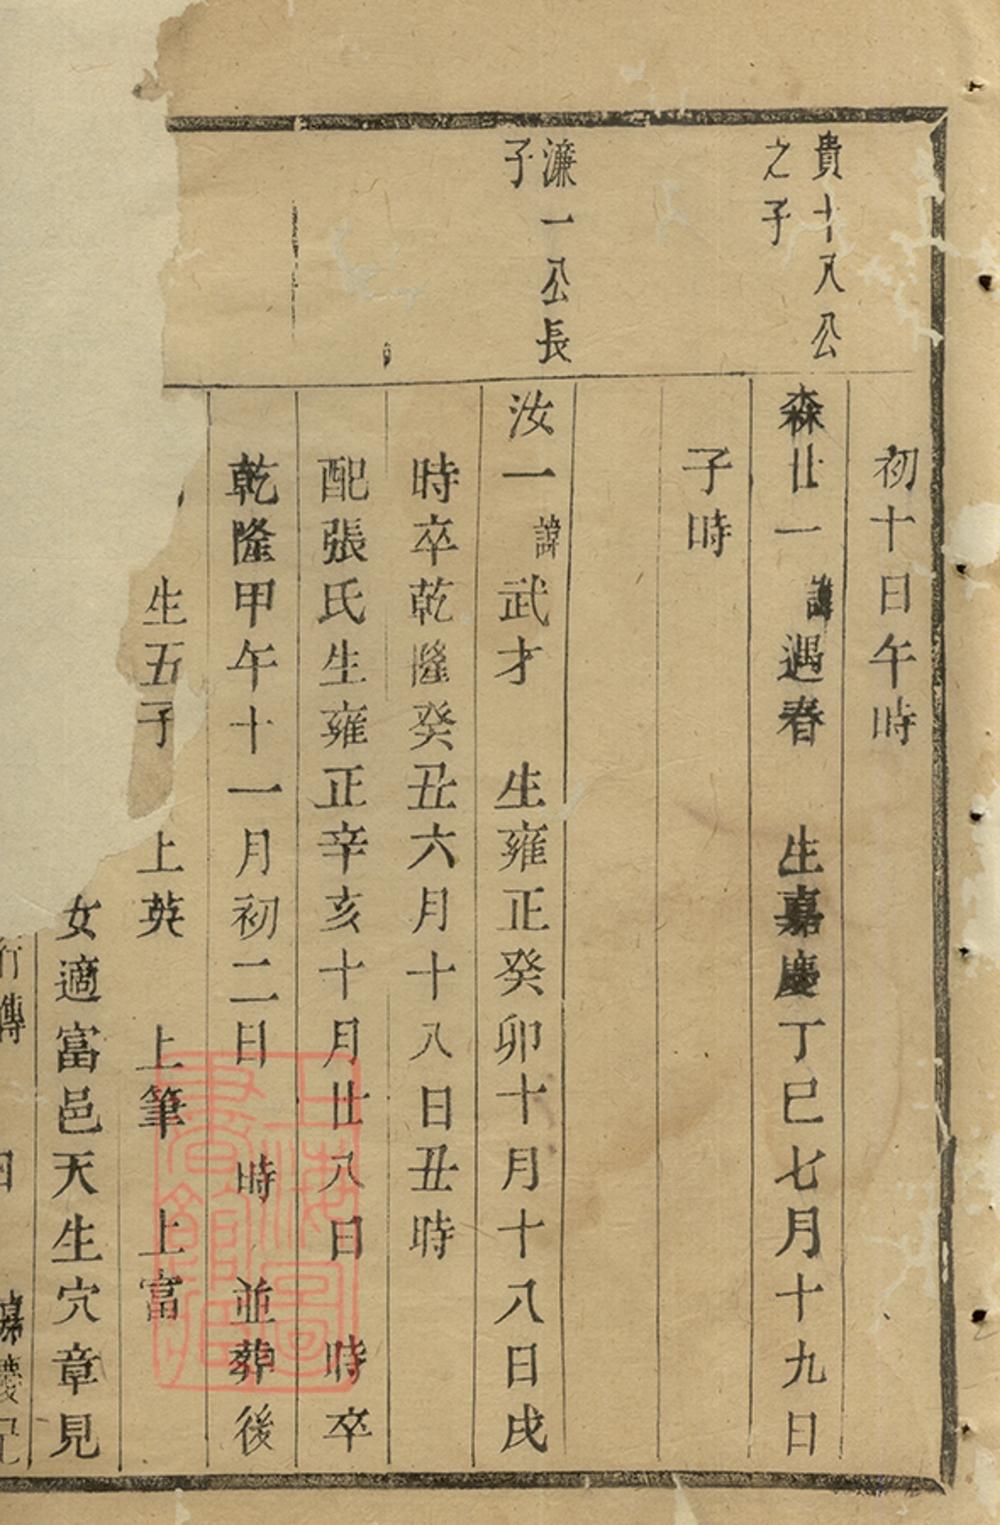 初十日午時
貴十八公
之子
森廿一諱遇春 生嘉慶丁巳七月十九日
子時
濂一公長
子
汝一諱武才 生雍正癸卯十月十八日戌
時卒乾隆癸丑六月十八日丑時
配張氏生雍正辛亥十月廿八日 時卒
乾隆甲午十一月初二日 時 並葬後
生五子 上英 上筆 上富
女適富邑天生穴章見
行傳 嘉慶
上海圖書館藏